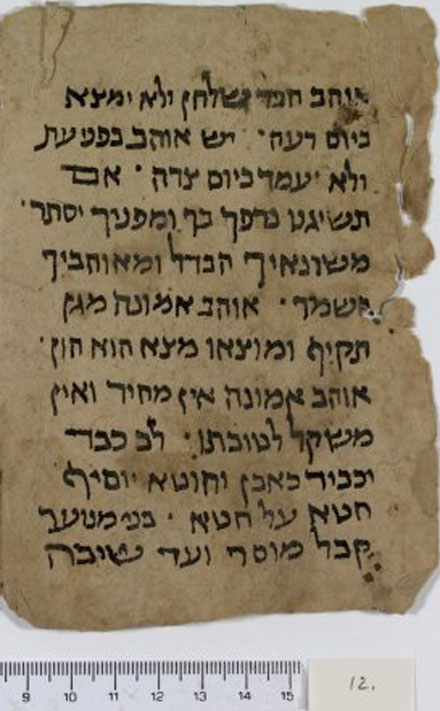 אוהב חבר שלחן ולא ימצא
ביום רעה · יש אוהב כפני עת
ולא יעמד ביום צרה · אם
תשיגנו נהפך בך ומפניך יסתר ·
משונאיך הבדל ומאוהביך
השמר · אוהב אמונה מגן
תקיף ומוצאו מצא הוא הון ·
אוהב אמונה אין מחיר ואין
משקל לטובתו · לב כבד
יכביד כאבן וחוטא יוסיף
חטא על חטא · בני מנוער
קבל מוסר ועד שיבה
9 10 11 12 13 14 15
12.